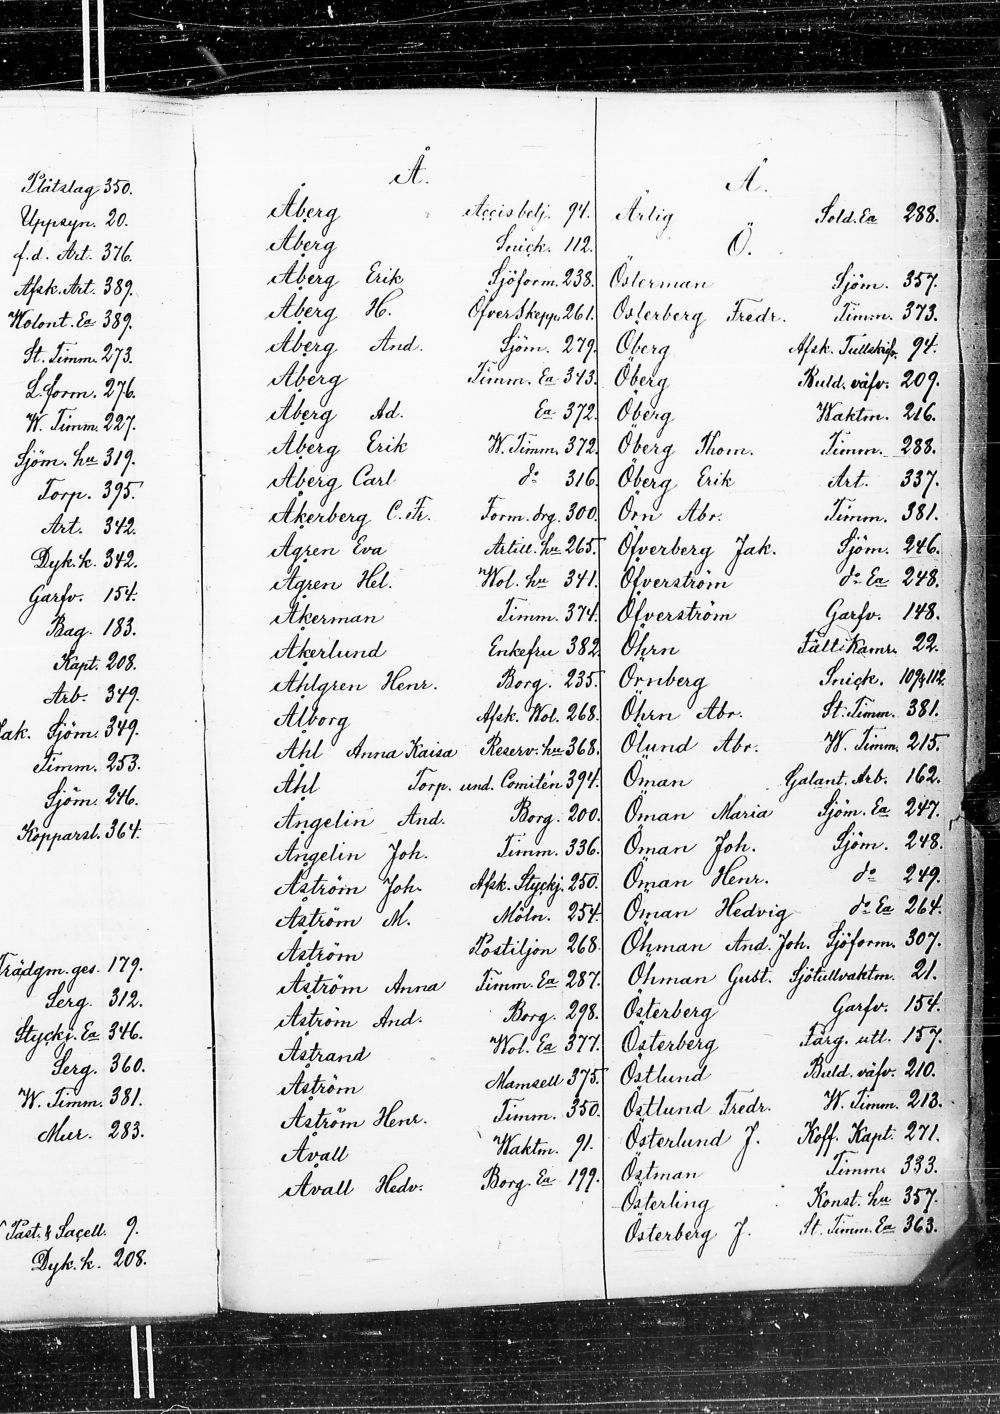 Plåtslag 350.
Uppsyn. 20.
f.d. Art. 376.
Afsk. Art. 389.
Wolont. Ea 389.
St. Timm. 273.
L. form. 276.
W. Timm. 227.
Sjöm. hu 319.
Torp. 395.
Art. 342.
Dyk. k. 342.
Garfv. 154.
Bag. 183.
Kapt. 208.
Arb. 349.
Jak. Sjöm. 349.
Timm. 253.
Sjöm. 246.
Kopparsl. 364.
Trädgm. ges. 179.
Serg. 312.
Styckj. Ea 346.
Serg. 360.
W. Timm. 381.
Mur. 283.
Past. & Sacell. 9.
Dyk. k. 208.
Å.
Åberg Accisbetj. 94.
Åberg Snick. 112.
Åberg Erik Sjöform. 238.
Åberg H. Öfverskepp. 261.
Åberg And. Sjöm. 279.
Åberg Timm. Ea 343.
Åberg Ad. Ea 372.
Åberg Erik W. Timm. 372.
Åberg Carl do 316.
Åkerberg C. Fr. Form. drg. 300.
Ågren Eva Artill. hu 265.
Ågren Hel. Wol. hu 341.
Åkerman Timm. 374.
Åkerlund Enkefru 382.
Åhlgren Henr. Borg. 235.
Ålborg Afsk. Wol. 268.
Åhl Anna Kaisa Reserv. hu 368.
Åhl Torp. und. Comitén 394.
Ångelin And. Borg. 200.
Ångelin Joh. Timm. 336.
Åström Joh. Afsk. Styckj. 250.
Åström M. Möln. 254.
Åström Postiljon 268.
Åström Anna Timm. Ea 287.
Åström And. Borg. 298.
Åstrand Wol. Ea 377.
Åström Mamsell 375.
Åström Henr. Timm. 350.
Åvall Waktm. 91.
Åvall Hedv. Borg. Ea 199.
Ä.
Ärlig Sold. Ea 288.
Ö.
Österman Sjöm. 357.
Österberg Fredr. Timm. 373.
Öberg Afsk. Tullskrifv. 94.
Öberg Buld. väfv. 209.
Öberg Waktm. 216.
Öberg Thom. Timm. 288.
Öberg Erik Art. 337.
Örn Abr. Timm. 381.
Öfverberg Jak. Sjöm. 246.
Öfverström do Ea 248.
Öfverström Garfv. 148.
Öhrn Fält Kamr. 22.
Örnberg Snick. 109, 112.
Öhrn Abr. St. Timm. 381.
Ölund Abr. W. Timm. 215.
Öman Galant. Arb. 162.
Öman Maria Sjöm. Ea 247.
Öman Joh. Sjöm. 248.
Öman Henr. do 249.
Öman Hedvig do Ea 264.
Öhman And. Joh. Sjöform. 307.
Öhman Gust. Sjötullvaktm. 21.
Österberg Garfv. 154.
Österberg Färg. utl. 157.
Östlund Buld. väfv. 210.
Östlund Fredr. W. Timm. 213.
Österlund J. Koff. Kapt. 271.
Östman Timm. 333.
Österling Konst. hu 357.
Österberg J. St. Timm. Ea 363.